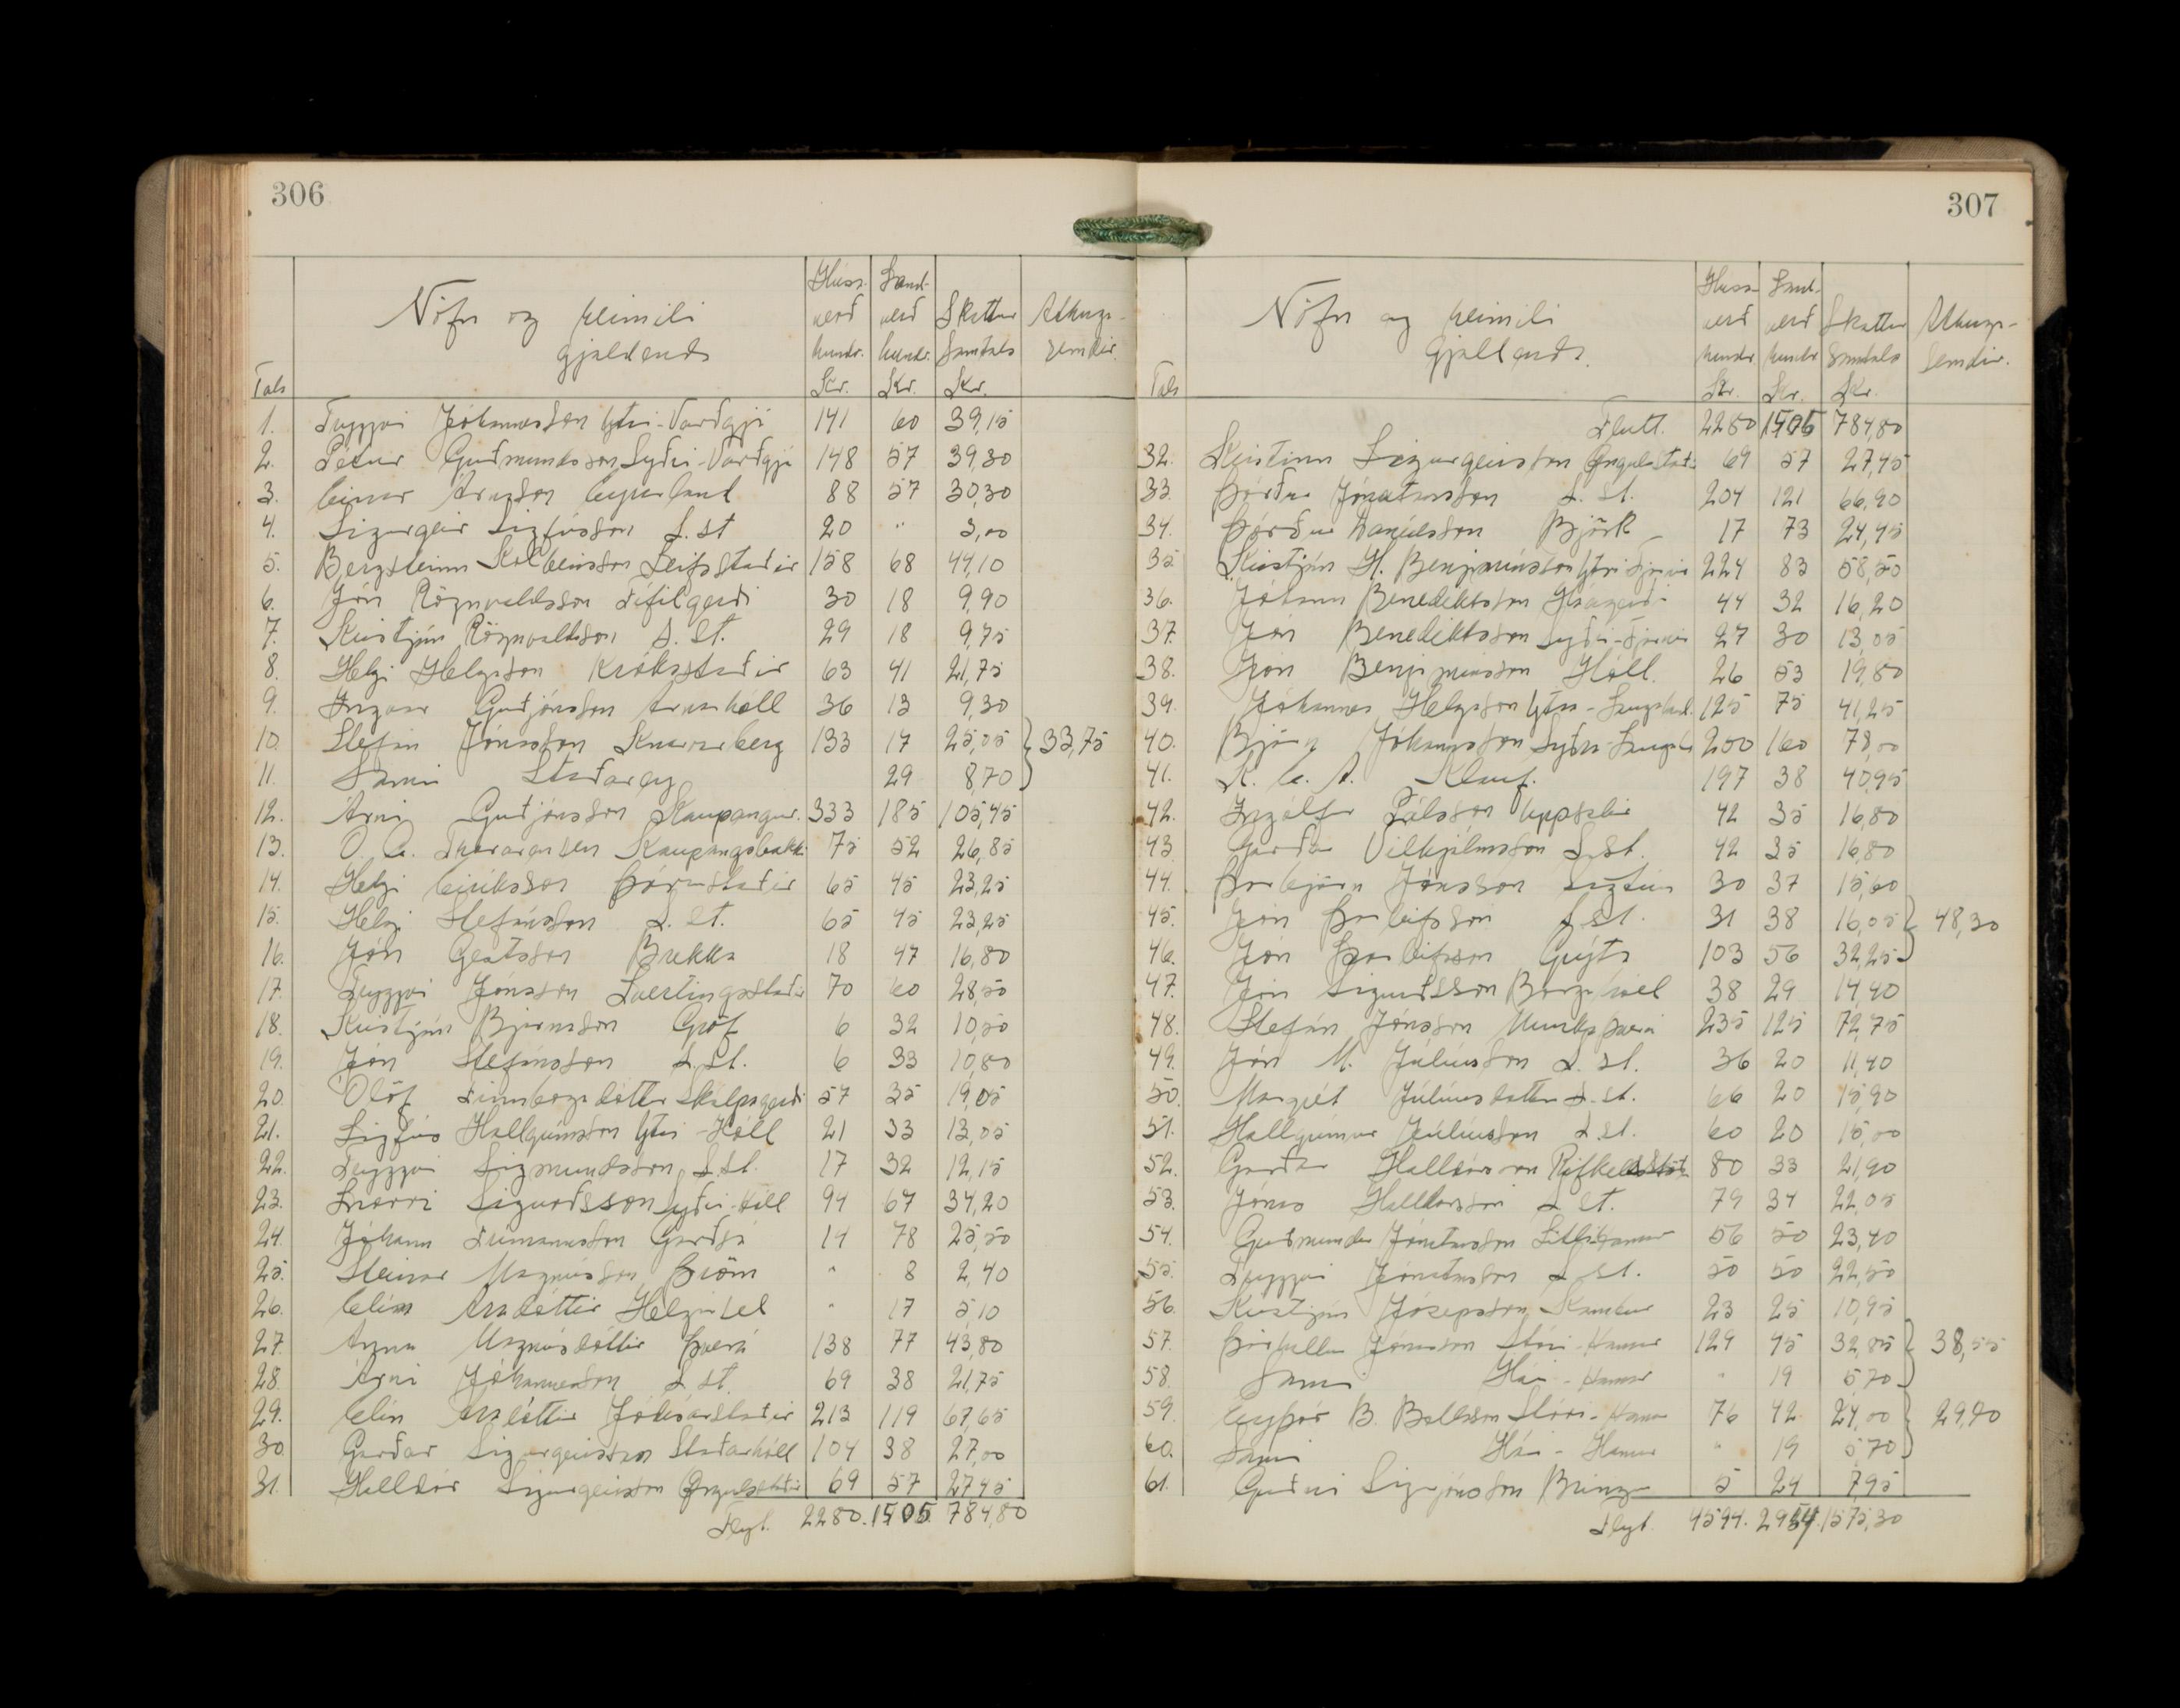 306
Húsa- Land-
Nöfn og heimili verð verð Skattur Athuga-
gjaldenda hundr. hundr. Samtals semdir.
Tala Kr. Kr. Kr.
1. Tryggvi Jóhannsson Ytri-Varðgjá 141 60 39,15
2. Pétur Guðmundsson Syðri-Varðgjá 148 57 39,30
3. Einar Árnason Eyrarland 88 57 30,30
4. Sigurgeir Sigfússon S. st 20 " 3,00
5. Bergsteinn Kolbeinsson Leifsstaðir 158 68 44,10
6. Jón Rögnvaldsson Fífilgerði 30 18 9,90
7. Kristján Rögnvaldsson S. st. 29 18 9,75
8. Helgi Helgason Króksstaðir 63 41 21,75
9. Ingvar Guðjónsson Arnarhóll 36 13 9,30
10. Stefán Jónsson Knarrarberg 133 17 25,05 } 33,75
11. Sami Staðarey 29 8,70
12. Árni Guðjónsson Kaupangur. 333 185 105,45
13. O. C. Thorarensen Kaupangsbakki 75 52 26,85
14. Helgi Eiríksson Þórustaðir 65 45 23,25
15. Helgi Stefánsson S. st. 65 45 23,25
16. Jón Gestsson Brekka 18 47 16,80
17. Tryggvi Jónsson Svertingsstaðir 70 60 28,50
18. Kristján Bjarnason Gröf 6 32 10,50
19. Jón Stefánsson S. st. 6 33 10,80
20. Ólöf Finnbogadóttir Skálpagerði 57 35 19,05
21. Sigfús Hallgrímsson Ytri-Hóll 21 33 13,05
22. Tryggvi Sigmundsson S. st. 17 32 12,15
23. Snorri Sigurðsson Syðri-Hóll 94 67 34,20
24. Jóhann Frímannsson Garðsá 14 78 25,50
25. Steinar Magnússon Þröm " 8 2,40
26. Elín Aradóttir Helgársel " 17 5,10
27. Anna Magnúsdóttir Þverá 138 77 43,80
28. Árni Jóhannesson S. st. 69 38 21,75
29. Elín Aradóttir Jódísarstaðir 213 119 67,65
30. Garðar Sigurgeirsson Staðarhóll 104 38 27,00
31. Halldór Sigurgeirsson Öngulsstaðir 69 57 27,45
Flyt. 2280. 1505. 784,80
307
Húsa- Land-
Nöfn og heimili verð verð Skattur Athuga-
gjaldenda. hundr. hundr. Samtals semdir.
Tala Kr. Kr. Kr.
Flutt. 2280 1505 784,80
32. Kristinn Sigurgeirsson Öngulsstaðir 69 57 27,45
33. Þórður Jónatansson S. st. 204 121 66,90
34. Þórður Daníelsson Björk 17 73 24,45
35. Kristján H. Benjamínsson Ytri-Tjarnir 224 83 58,50
36. Jóhann Benediktsson Háagerði 44 32 16,20
37. Jón Benediktsson Syðri-Tjarnir 27 30 13,05
38. Jón Benjamínsson Hóll. 26 53 19,80
39. Jóhannes Helgason Ytra-Laugaland. 125 75 41,25
40. Björn Jóhannsson Syðra-Laugaland 200 160 78,00
41. K. E. A. Klauf. 197 38 40,95
42. Ingólfur Pálsson Uppsalir 42 35 16,80
43. Garðar Vilhjálmsson S. st. 42 35 16,80
44. Þorbjörn Jónsson Sigtún 30 37 15,60
45. Jón Þorleifsson S. st. 31 38 16,05 } 48,30
46. Jón Þorleifsson Grýta 103 56 32,25
47. Jón Sigurðsson Borgarhóll 38 29 14,40
48. Stefán Jónsson Munkaþverá 235 125 72,75
49. Jón M. Júlíusson S. st. 36 20 11,40
50. Margrét Júlíusdóttir S. st. 66 20 15,90
51. Hallgrímur Júlíusson S. st. 60 20 15,00
52. Garðar Halldórsson Rifkelsstaðir 80 33 21,90
53. Jónas Halldórsson S. st. 79 34 22,05
54. Guðmundur Jónatansson Litlihamar 56 50 23,40
55. Tryggvi Jónatansson S. st. 50 50 22,50
56. Kristján Jósepsson Kambur 23 25 10,95
57. Þórhallur Jónasson Stóri-Hamar 129 45 32,85 } 38,55
58. Sami Hái-Hamar " 19 5,70
59. Eyþór B. Bollason Stóri-Hamar 76 42 24,00 } 29,70
60. Sami Hái-Hamar " 19 5,70
61. Guðni Sigurjónsson Bringa 5 24 7,95
Flyt. 4594. 2954. 1575,30